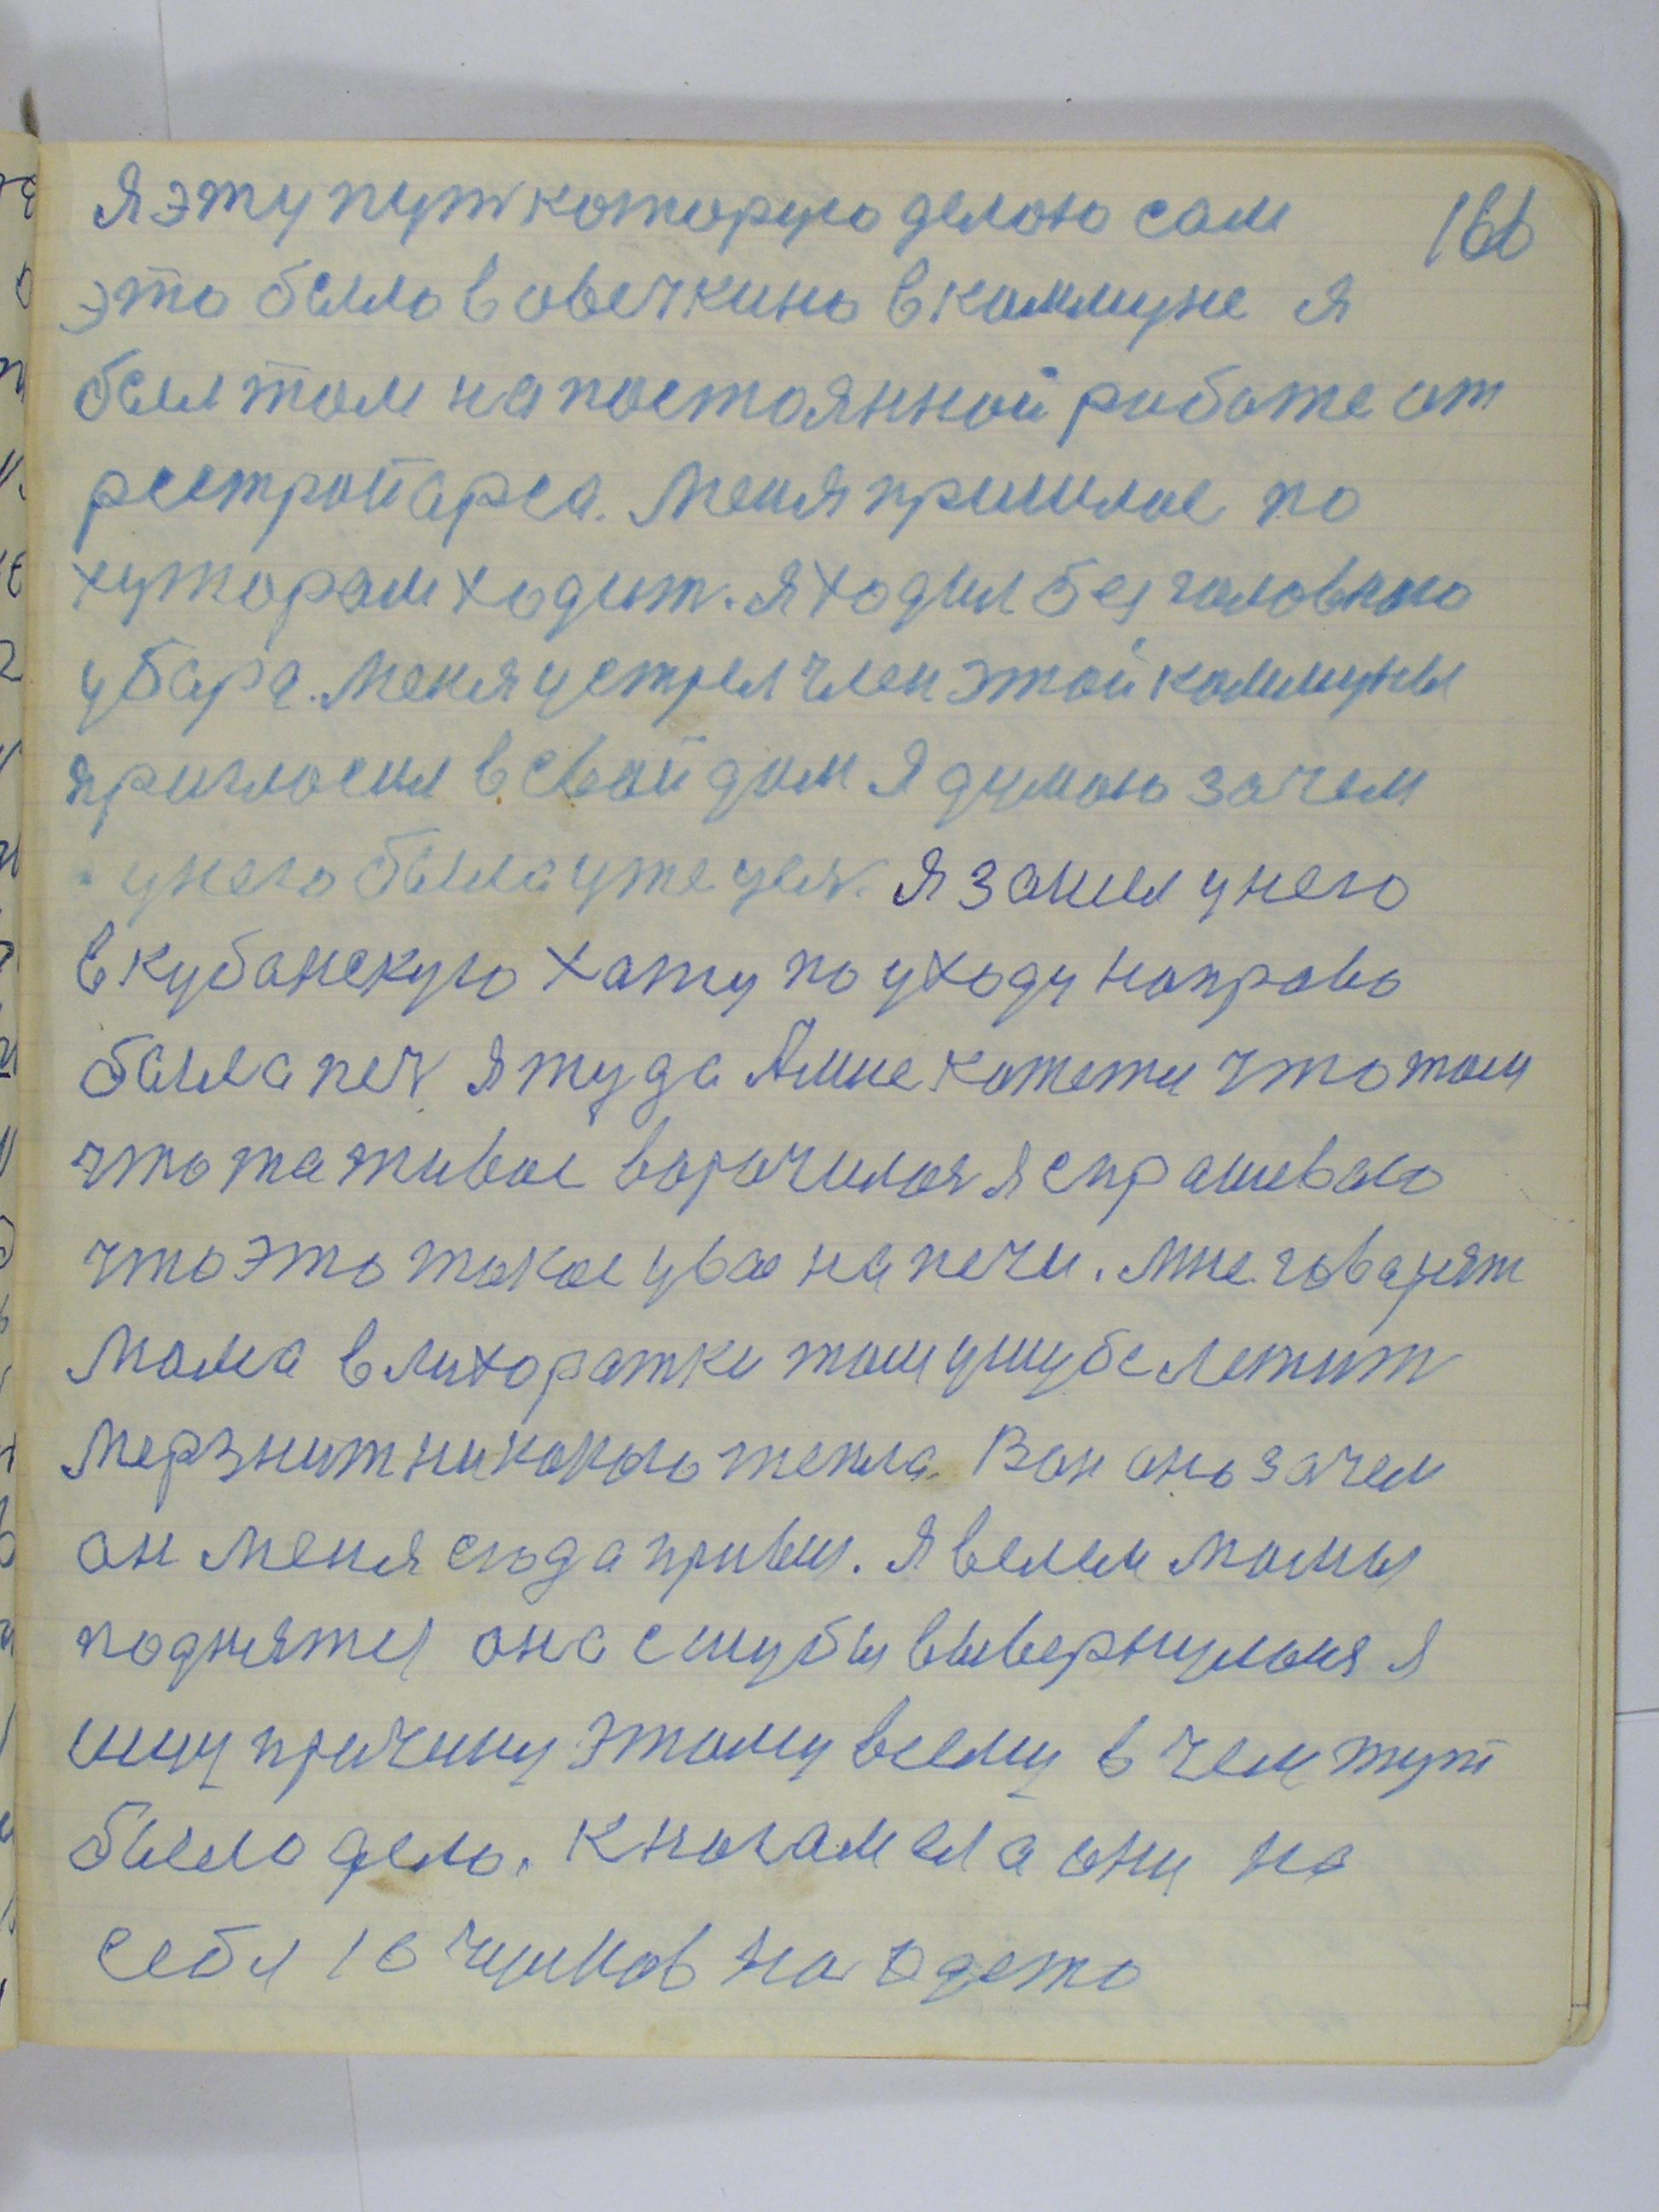 166
Я эту пут которую делаю сам
это было в овечкино в коммуне я
был там на постоянной работе от
рестройарса. Меня пришлос по
хуторам ходит. я ходил без головново
убара. Меня устрел член этой коммуны
пригласил в свой дом Я думаю зачем
унего была уже цел. я зашел у него
в кубанскую хату по уходу направо
была печ я туда Амне кажеты что там
что та живое варочилося я спрашеваю
что это такое увас на печи. Мне говарят
Мама в лихоратки там ушубе лежит
Мерзнит никокого тепла. Вон оно зачем
он меня сюда привел. Я велел мамы
поднятся она с шубы вывернулася я
ищу причину этому всему в чем тут
было дело. К ногам ела они на
себя 16 чулков на одето